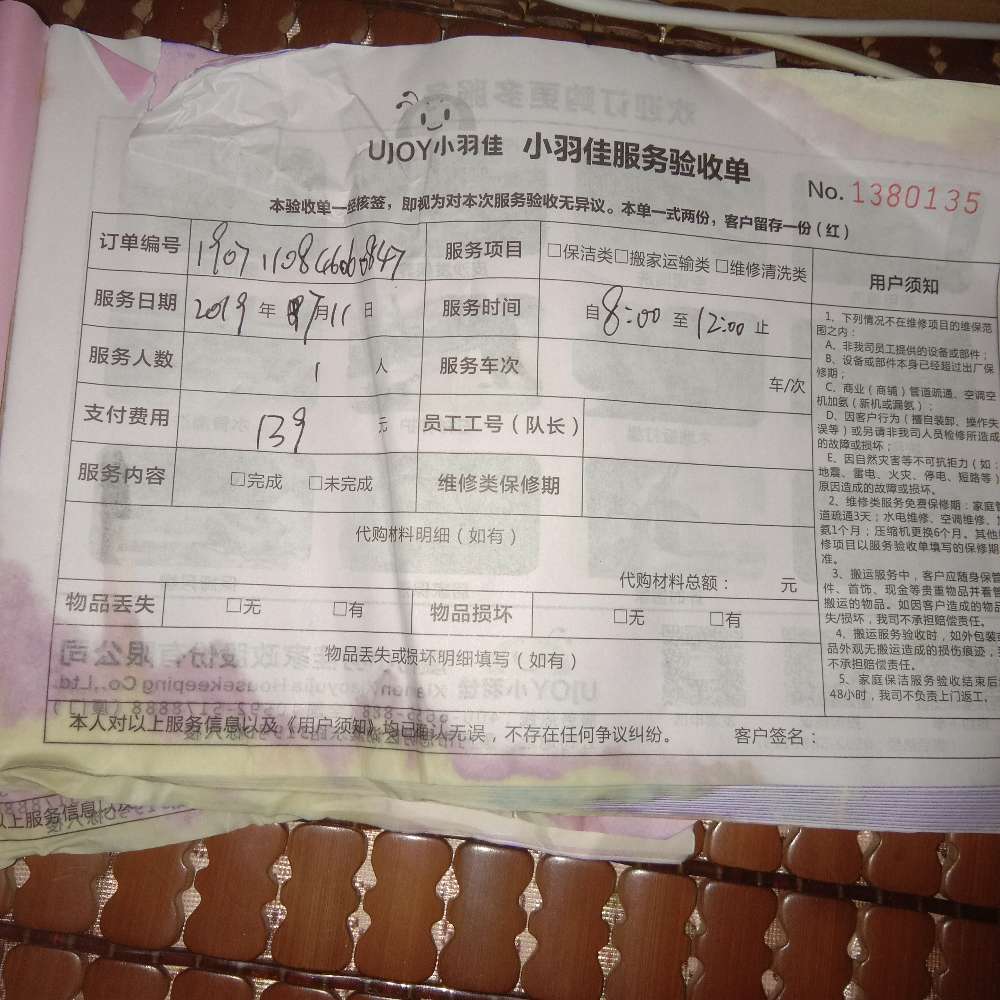 UJOY小羽佳 小羽佳服务验收单
No. 1380135
本验收单一经核签，即视为对本次服务验收无异议。本单一式两份，客户留存一份（红）
订单编号 服务项目 □保洁类□搬家运输类□维修清洗类
服务日期 2019 年 7月11 日 服务时间 自8:00 至 12:00 止
服务人数 1 人 服务车次 车/次
支付费用 139 元 员工工号（队长）
服务内容 □完成 □未完成 维修类保修期
代购材料明细（如有）
代购材料总额： 元
物品丢失 □无 □有 物品损坏 □无 □有
物品丢失或损坏明细填写（如有）
本人对以上服务信息以及《用户须知》均已确认无误，不存在任何争议纠纷。 客户签名：
用户须知
1、下列情况不在维修项目的维保范
围之内：
A、非我司员工提供的设备或部件；
B、设备或部件本身已经超过出厂保
修期；
C、商业（商铺）管道疏通、空调空
机加氨（新机或漏氨）；
D、因客户行为（擅自装卸、操作失
误等）或另请非我司人员检修所造成
的故障或损坏；
E、因自然灾害等不可抗拒力（如：
地震、雷电、火灾、停电、短路等）
原因造成的故障或损坏。
2、维修类服务免费保修期：家庭管
道疏通3天；水电维修、空调维修、
氨1个月；压缩机更换6个月。其他
修项目以服务验收单填写的保修期
准。
3、搬运服务中，客户应随身保管
件、首饰、现金等贵重物品并看管
搬运的物品。如因客户造成的物品
失/损坏，我司不承担赔偿责任。
4、搬运服务验收时，如外包装或
品外观无搬运造成的损伤痕迹，
不承担赔偿责任。
5、家庭保洁服务验收结束后
48小时，我司不负责上门返工。
以上服务信息